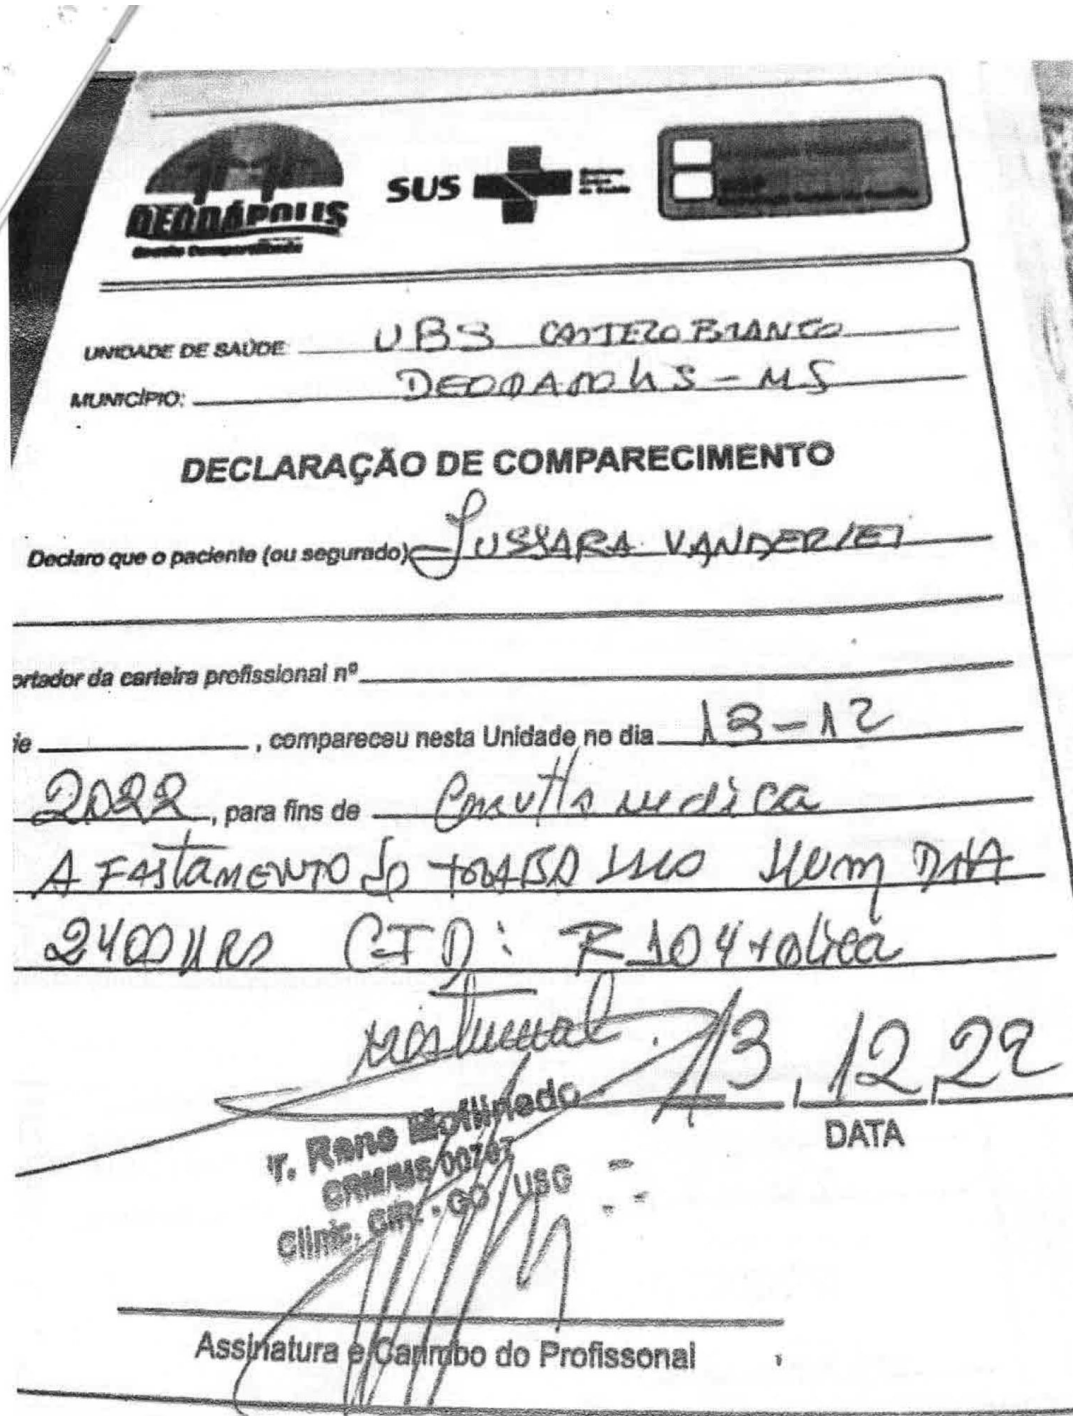 DEODÁPOLIS
Gestão Compartilhada
SUS
UNIDADE DE SAÚDE: UBS CASTELO BRANCO
MUNICÍPIO: DEODAPOLIS - MS
DECLARAÇÃO DE COMPARECIMENTO
Declaro que o paciente (ou segurado) JUSSARA VANDERLEI
ortador da carteira profissional nº
ie , compareceu nesta Unidade no dia 13-12
2022, para fins de Consulta medica
AFASTAMENTO do trabalho Hum DHA
2400 HRS CID: R104 + colica
mestrual. 13, 12, 22
DATA
r. Rene Mollinedo
CRM/MS/00767
Clinic. CIR. - GO / USG
Assinatura e Carimbo do Profissonal